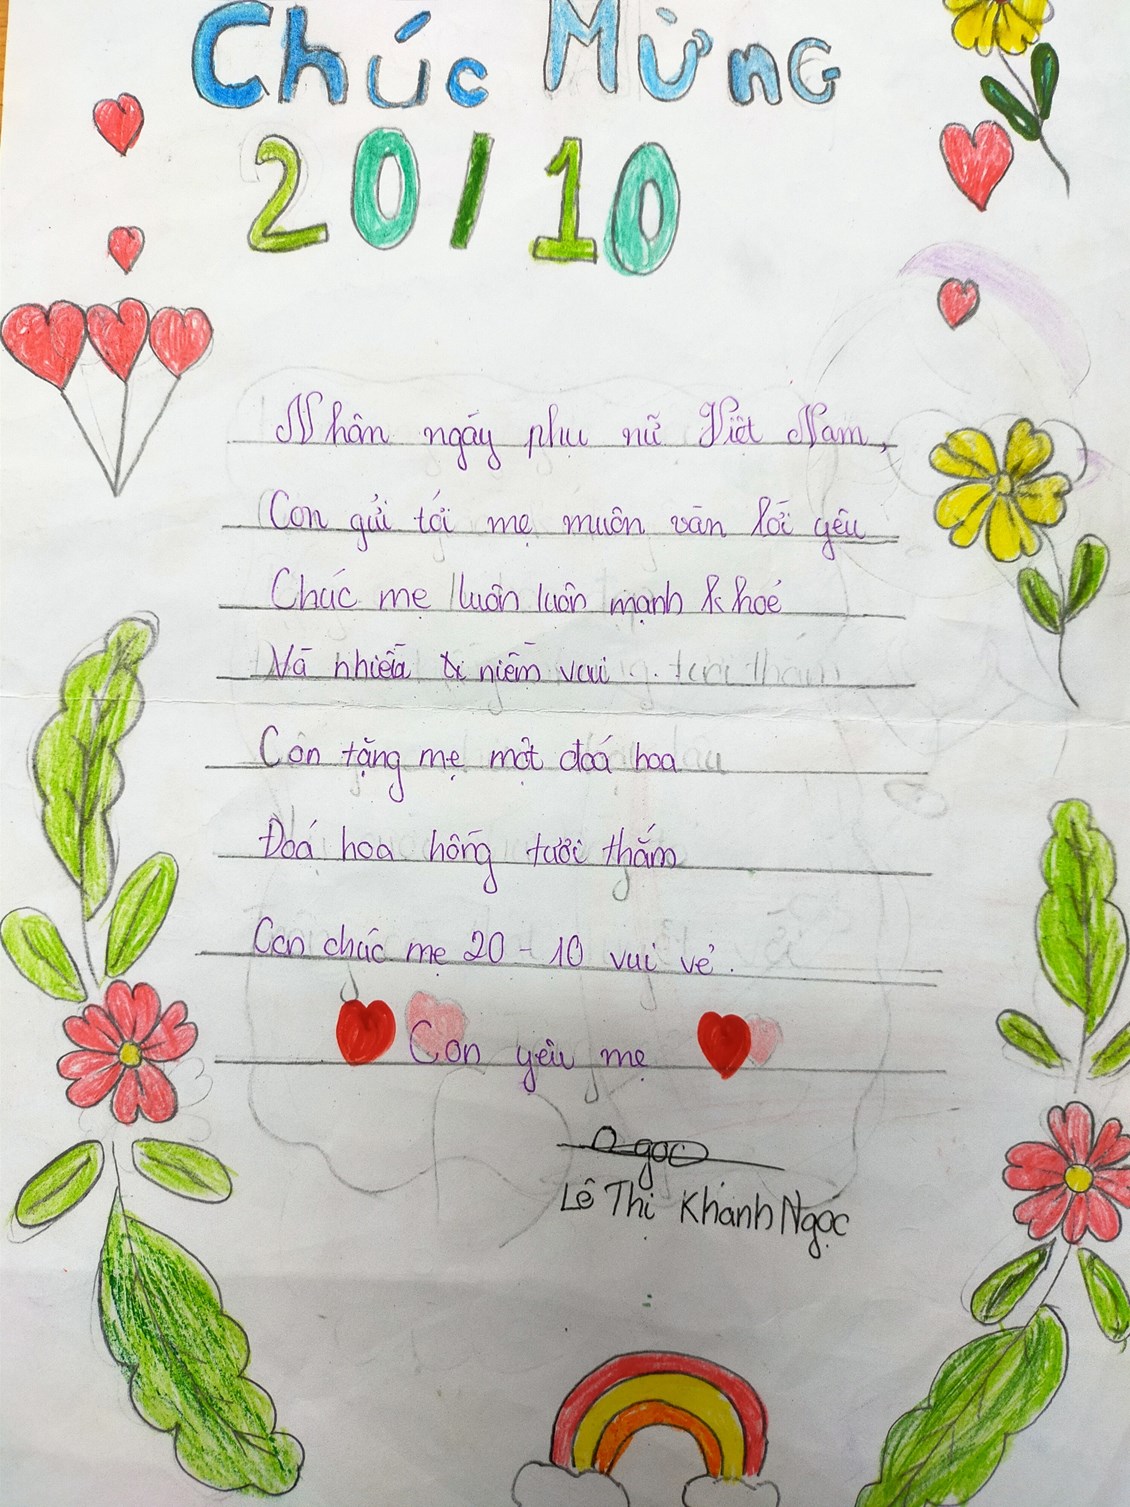 Chúc Mừng
20/10
Nhân ngày phụ nữ Việt Nam,
Con gửi tới mẹ muôn vàn lời yêu
Chúc mẹ luôn luôn mạnh khoẻ
Và nhiều niềm vui
Con tặng mẹ một đoá hoa
Đoá hoa hồng tươi thắm
Con chúc mẹ 20-10 vui vẻ.
Con yêu mẹ
Ngọc
Lê Thị Khánh Ngọc